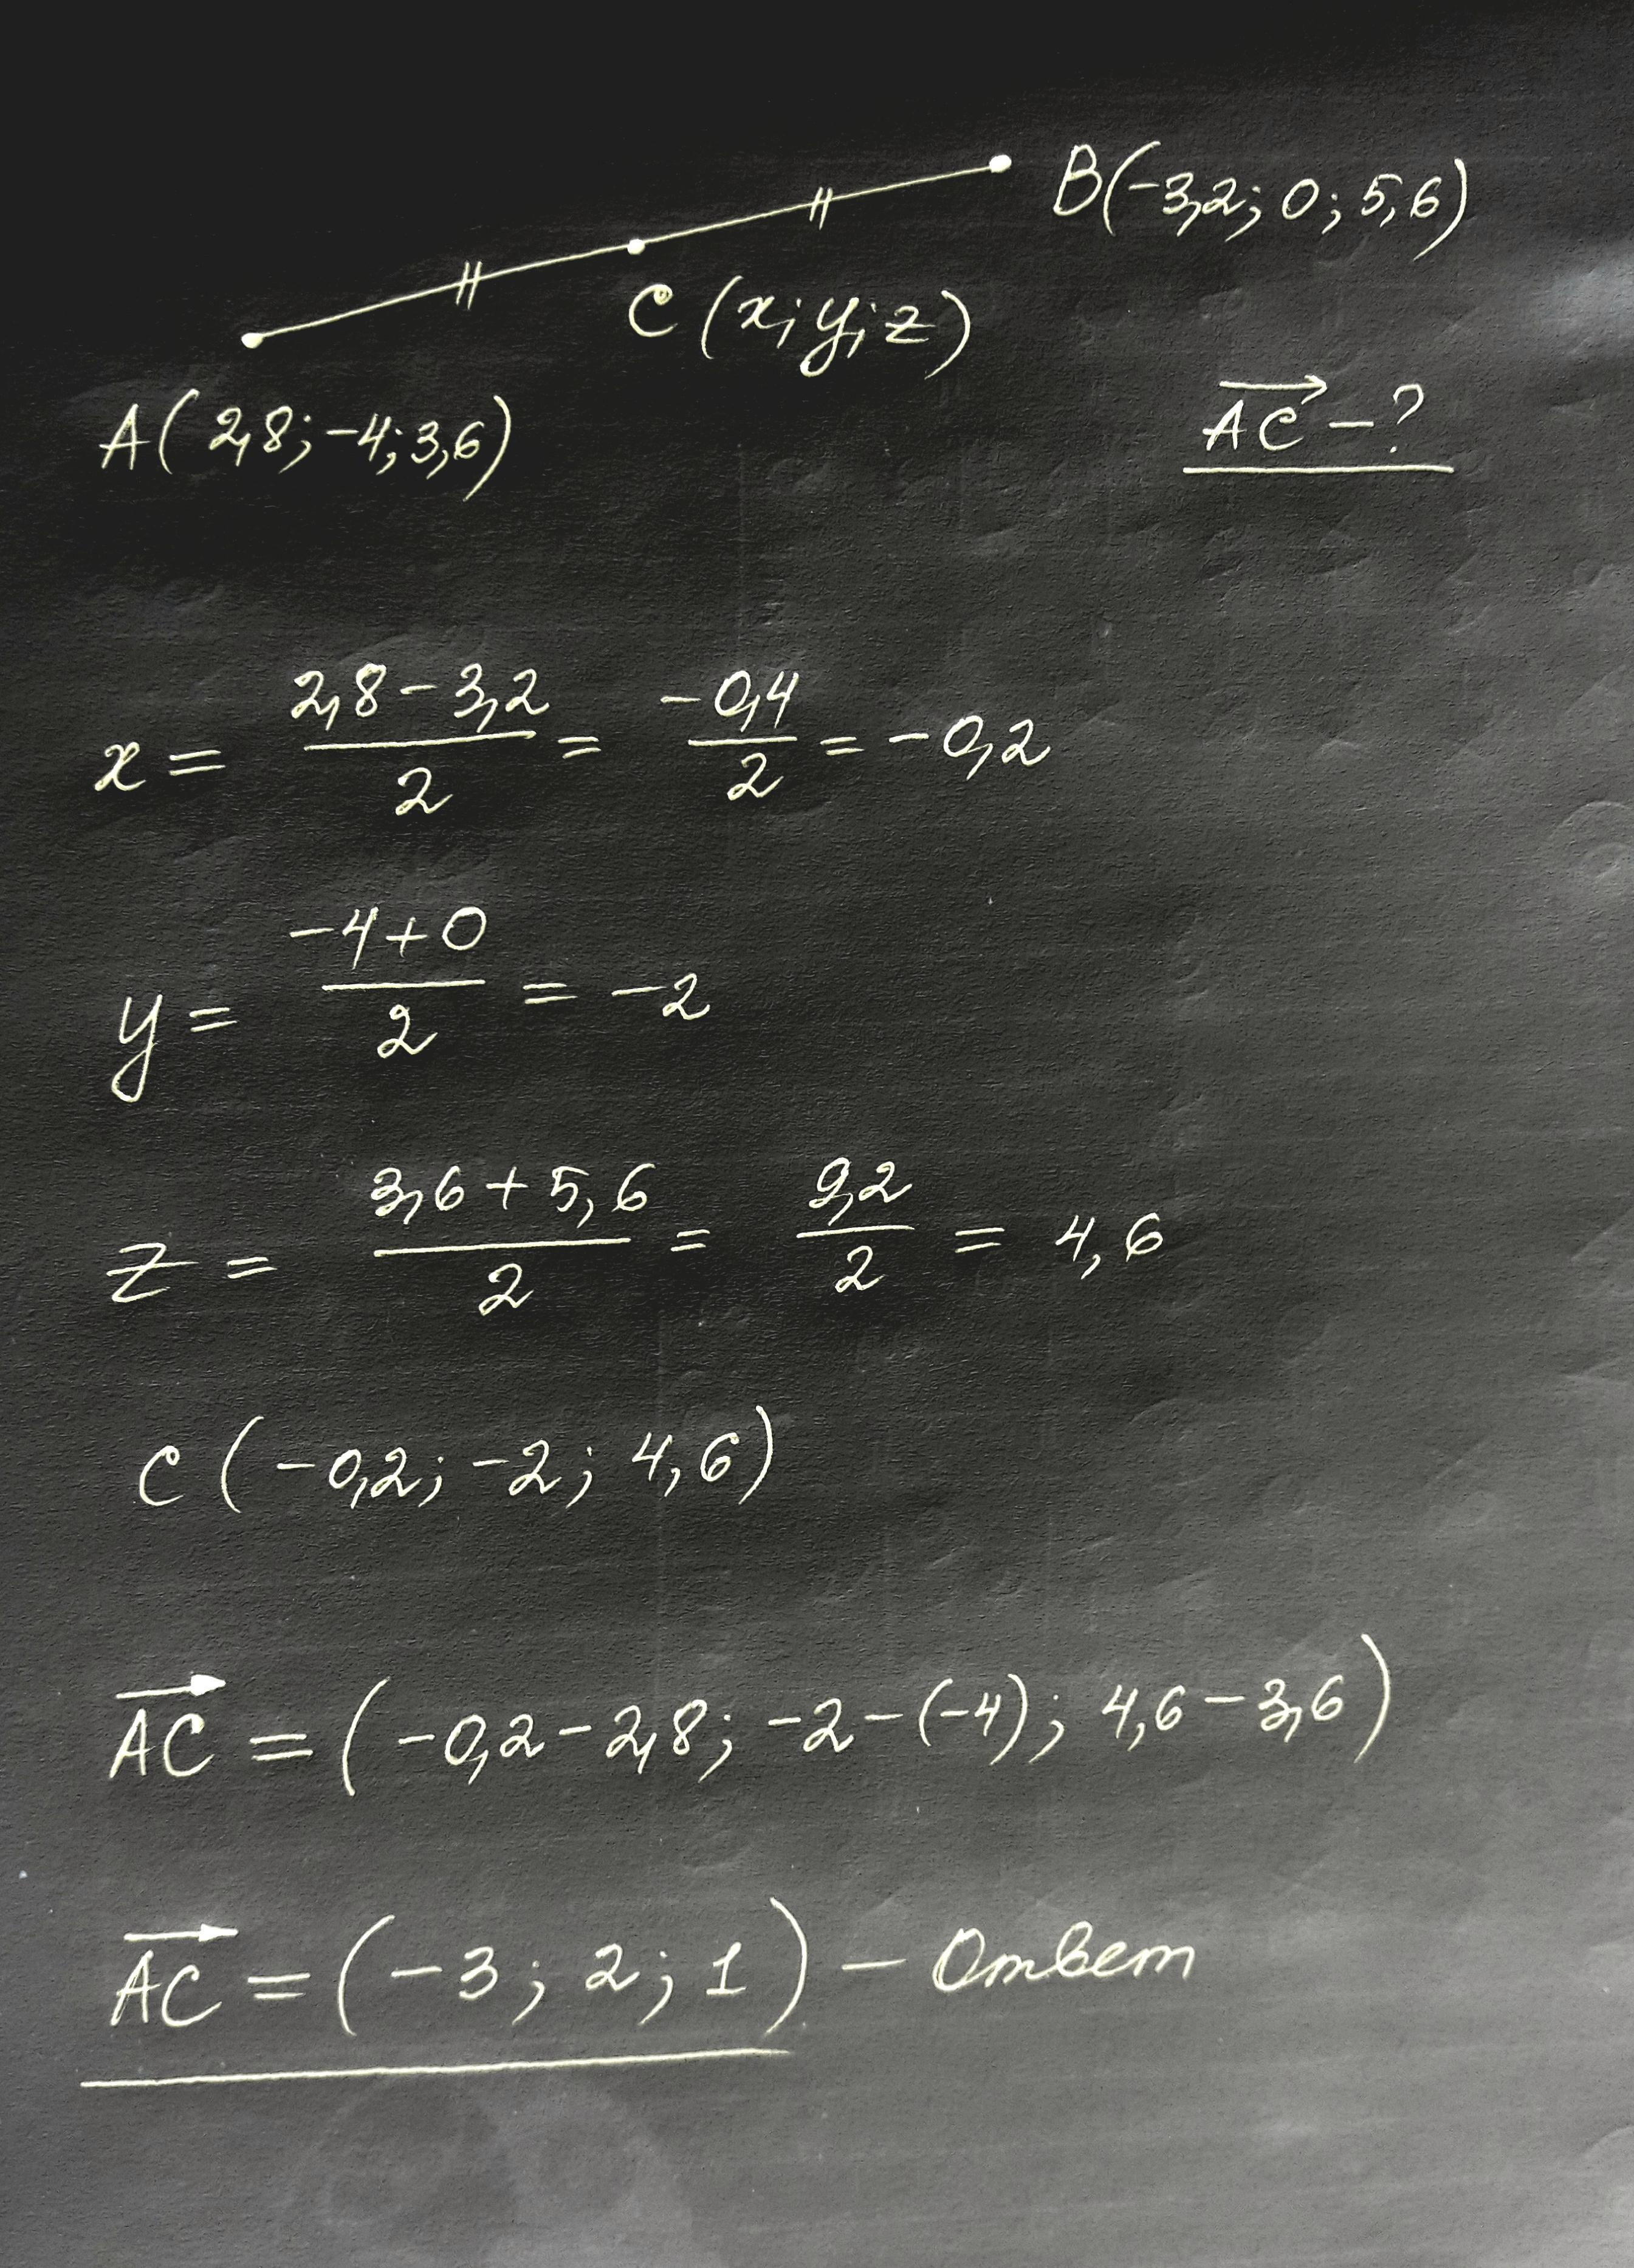 B(-3,2; 0; 5,6)
C(x; y; z)
A(2,8; -4; 3,6)
\overrightarrow{AC} - ?
x = \frac{2,8 - 3,2}{2} = \frac{-0,4}{2} = -0,2
y = \frac{-4 + 0}{2} = -2
z = \frac{3,6 + 5,6}{2} = \frac{9,2}{2} = 4,6
C(-0,2; -2; 4,6)
\overrightarrow{AC} = (-0,2 - 2,8; -2 - (-4); 4,6 - 3,6)
\overrightarrow{AC} = (-3; 2; 1) - Ответ